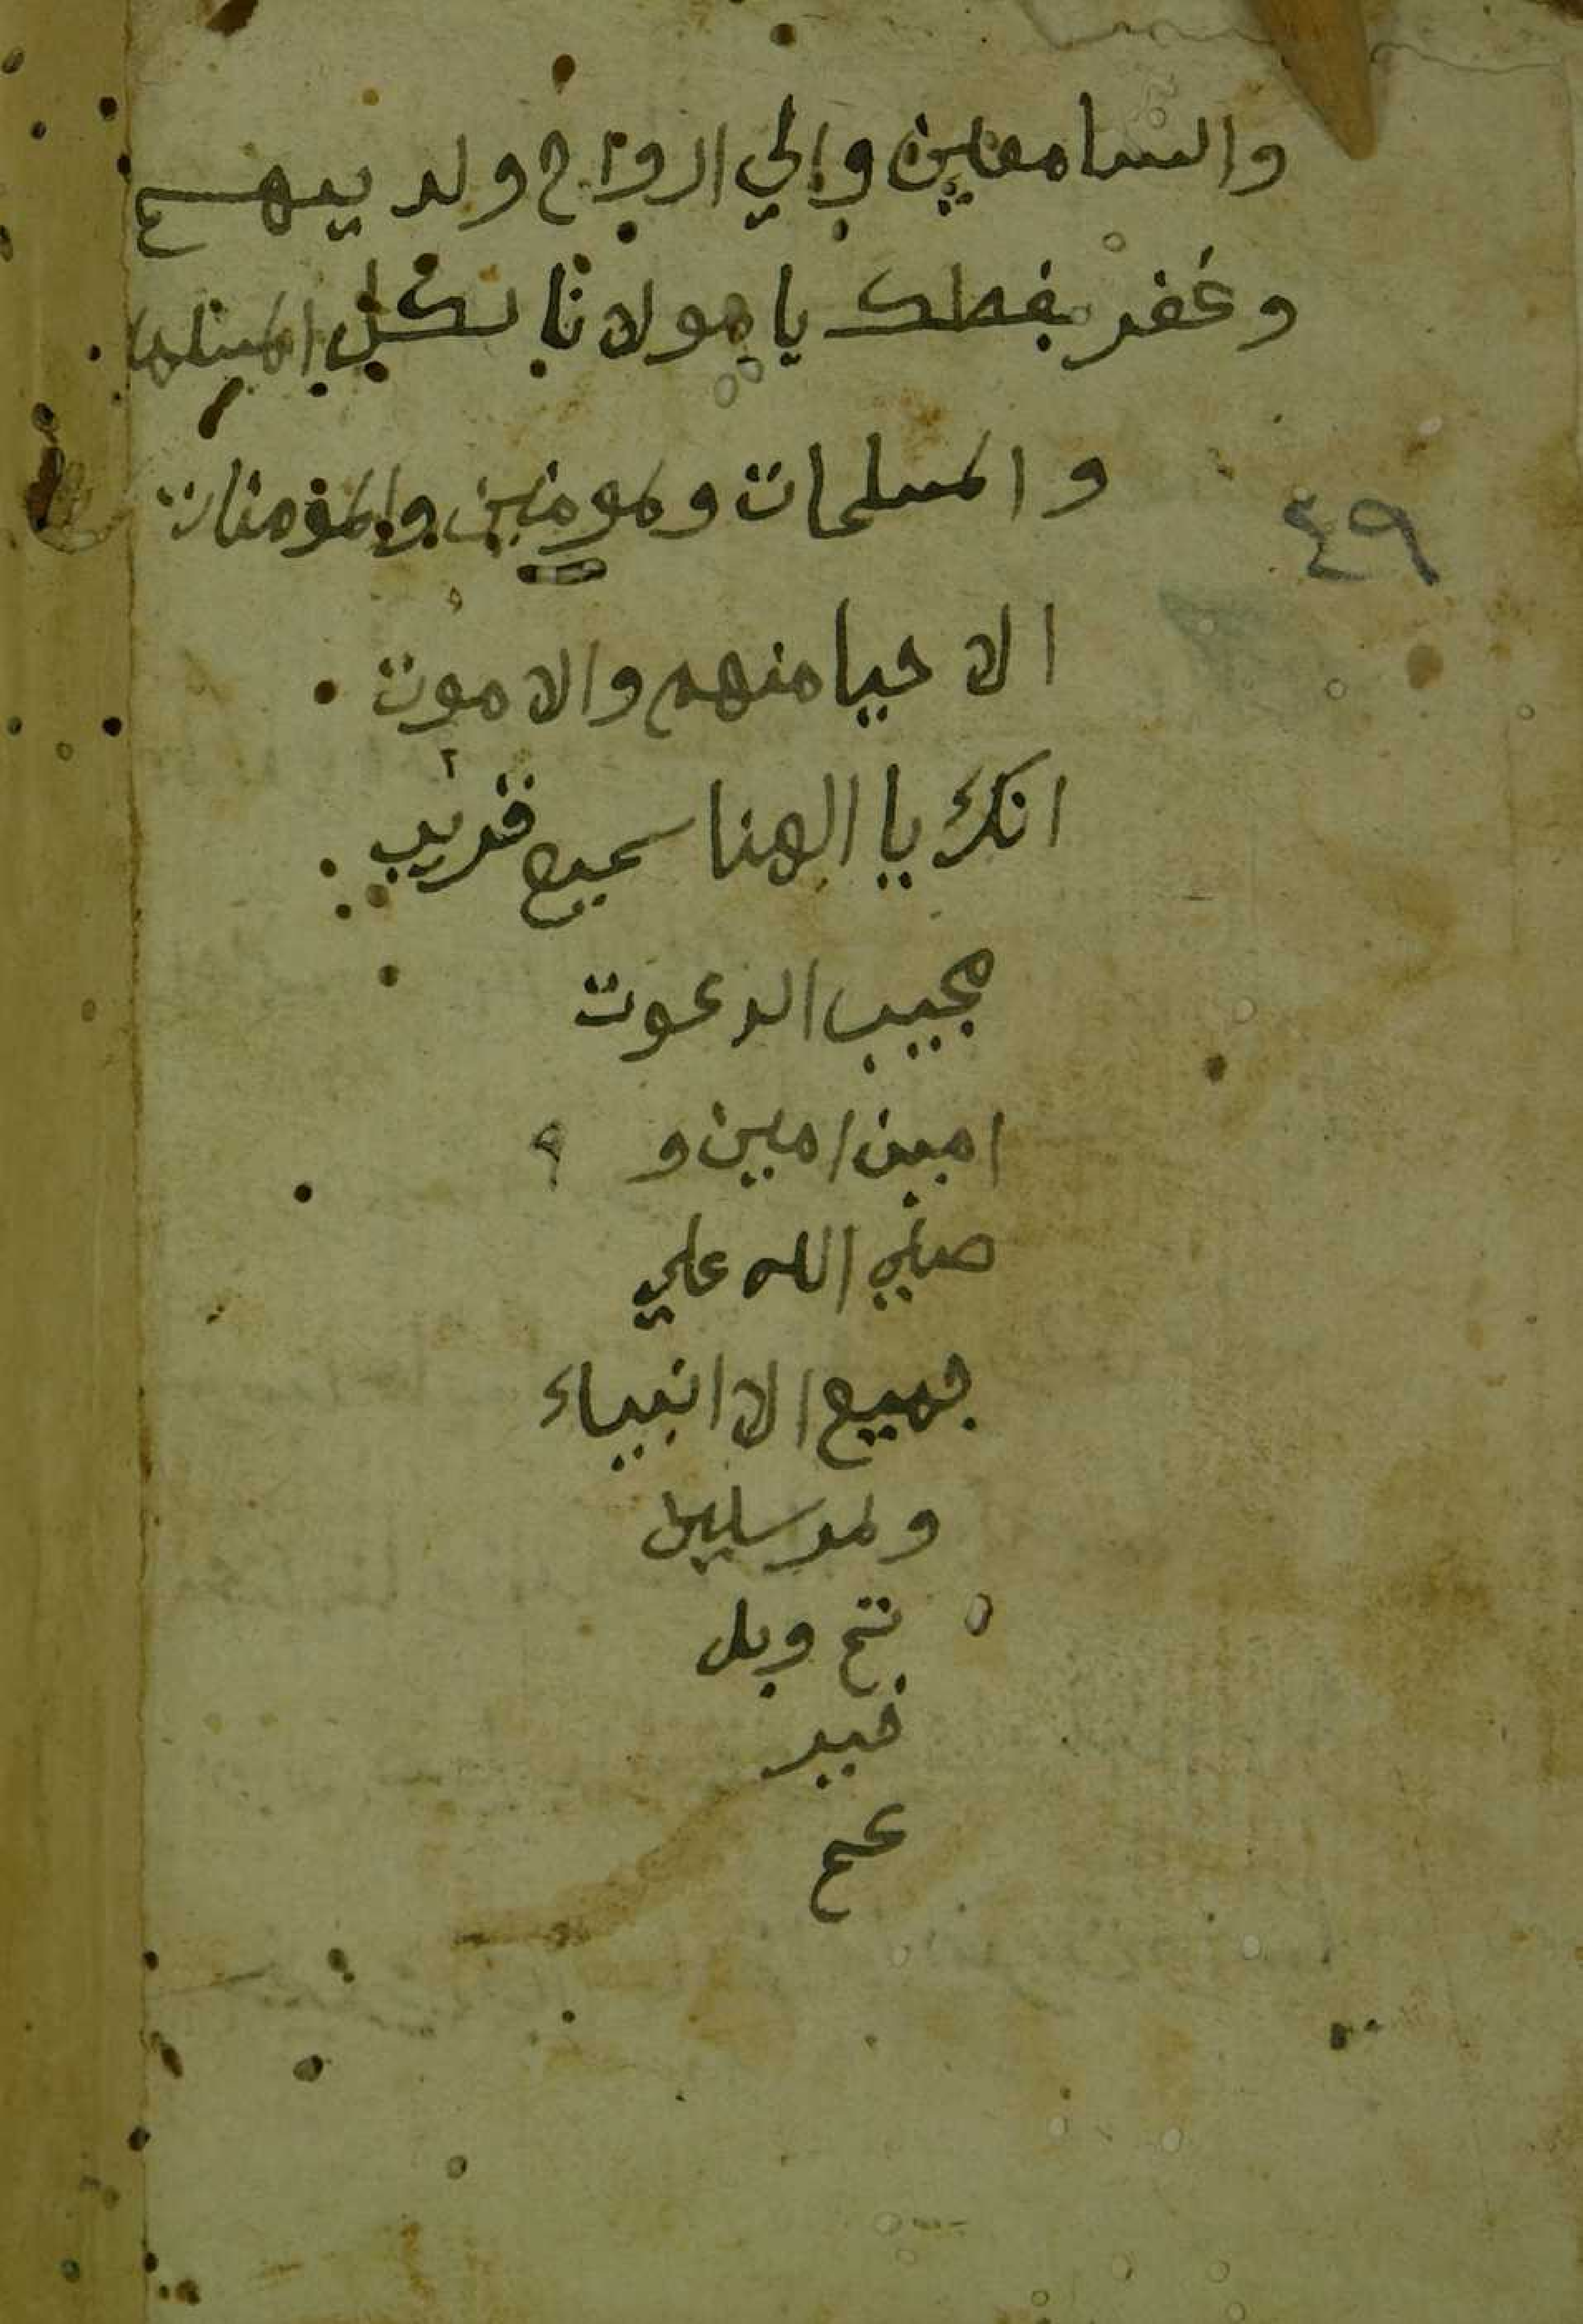 والسامعين والي ارواح ولديهم
وغفر بفضلك يا مولانا لكل المسلما
والمسلمات ولمومنين والمؤمنات
٤٩
الاحيا منهم والاموت
انك يا الهنا سميع قريب
مجيب الدعوت
امين امين و
صلي الله علي
جميع الاانبياء
ولمرسلين
خير